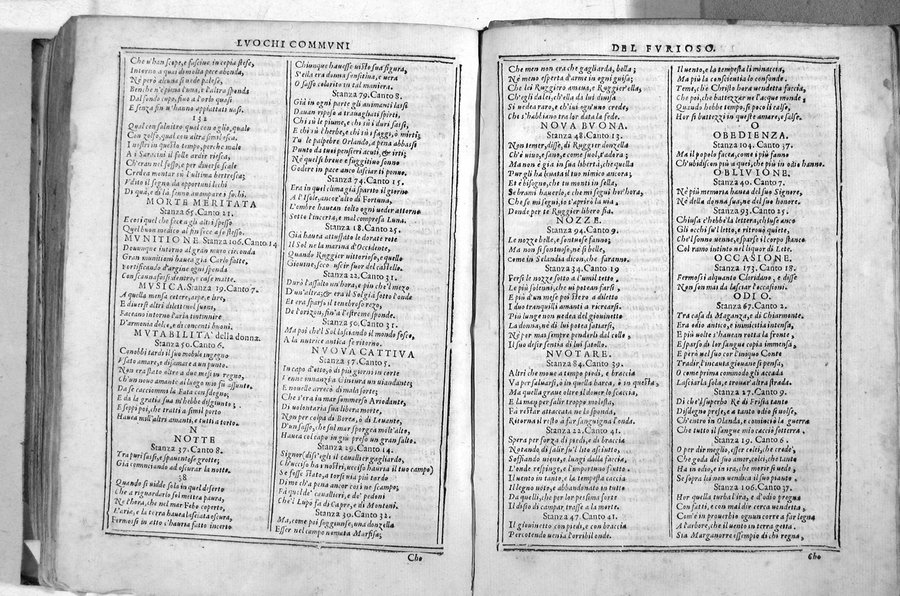 LVOCHI COMMVNI
Che u'han scope, e fascine in copia stese,
Intorno a quai di molta pece abonda,
Nè però alcuna si uede palese,
Benche n'è piena l'una, e l'altra sponda
Dal fondo cupo, fino a l'orlo quasi
E senza fin u'hanno appiattati uasi.
132
Qual con salnitro; qual con oglio, quale
Con zolfo, qual con altra simil esca.
I nostri in questo tempo, perche male
A i Saracini il folle ardir riesca,
Ch'eran nel fosso, e per diuerse scale
Credean montar su l'ultima bertresca;
Vdito il segno da opportuni lochi
Di quà, e di là fenno auampare i fochi.
MORTE MERITATA
Stanza 65. Canto 21.
E cosi quel che fece a gli altri spesso
Quel buon medico al fin fece a se stesso.
MVNITIONE Stanza 106. Canto 14
Douunque intorno al gran muro circonda
Gran munitioni hauea già Carlo fatte,
Fortificando d'argine ogni sponda
Con scannafossi dentro, e case matte.
MVSICA. Stanza 19. Canto 7.
A quella mensa cetere, arpe, e lire,
E diuersi altri diletteuol suoni,
Faceano intorno l'aria tintinnire
D'armonia dolce, e di concenti buoni.
MVTABILITÀ della donna.
Stanza 50. Canto 6.
Conobbi tardi il suo mobile ingegno
Vsato amare, e disamare a un punto.
Non era stato oltre a due mesi in regno,
Ch'un nouo amante al luogo mio fu assunto.
Da se cacciommi la Fata con sdegno;
E da la gratia sua m'hebbe disgiunto;
E seppi poi, che tratti a simil porto
Hauea mill'altri amanti, e tutti a torto.
N
NOTTE
Stanza 37. Canto 8.
Tra puri sassi, e spauentose grotte;
Gia cominciando ad oscurar la notte.
38
Quando si uidde sola in quel diserto
Che a riguardarlo sol mettea paura,
Ne l'hora, che nel mar Febo coperto,
L'aria, e la terra hauea lasciata oscura,
Fermossi in atto c'haurìa fatto incerto
Chiunque hauesse uisto sua figura,
S'ella era donna sensitiua, e uera
O sasso colorito in tal maniera.
Stanza 79. Canto 8.
Già in ogni parte gli animanti lassi
Dauan riposo a trauagliati spirti,
Chi su le piume, e chi sù i duri sassi,
E chi sù l'herbe, e chi sù i faggi, ò mirti;
Tu le palpebre Orlando, a pena abbassi
Punto da tuoi pensieri acuti, & irti;
Nè quel si breue e fuggitiuo sonno
Godere in pace anco lasciar ti ponno.
Stanza 74. Canto 15.
Era in quel clima già sparito il giorno
A l'Isole, anc'alto di Fortuna,
L'ombre hauean tolto ogni ueder attorno
Sotto l'incerta, e mal compresa Luna.
Stanza 18. Canto 25.
Già hauea attuffato le dorate rote
Il Sol ne la marina d'Occidente,
Quando Ruggier uittorioso, e quello
Giouine, seco uscir fuor del castello.
Stanza 22. Canto 31.
Durò l'assalto un'hora, e piu che'l mezo
D'un'altra; & era il Sol già sotto l'onde
Et era sparso il tenebroso rezo,
De l'orizon, fin'a l'estreme sponde.
Stanza 50. Canto 31.
Ma poi che'l Sol lasciando il mondo fosco,
A la nutrice antica fe ritorno.
NVOVA CATTIVA
Stanza 57. Canto 5.
In capo d'otto, ò di più giorni in corte
Venne innanzi a Gineura un uiandante;
E nouelle arrecò di mala sorte;
Che s'era in mar summerso Ariodante,
Di uolontaria sua libera morte,
Non per colpa di Borea, ò di Leuante,
D'un sasso, che sul mar sporgea molt'alto,
Hauea col capo in giù preso un gran salto.
Stanza 29. Canto 14.
Signor (diss'egli il caualier gagliardo,
Ch'ucciso ha i nostri, ucciso hauria il tuo campo)
Se fosse stato, a torsi uia più tardo
Di me ch'a pena ancor cosi ne scampo;
Fà quel de' cauallieri, e de' pedoni
Che'l Lupo fà di Capre, e di Montoni.
Stanza 30. Canto 32.
Ma, come poi soggiunse, una donzella
Esser nel campo nomata Marfisa;
Che
DEL FVRIOSO.
Che men non era che gagliarda, bella;
Nè meno esperta d'arme in ogni guisa;
Che lei Ruggiero amaua, e Ruggier'ella,
Ch'egli da lei, ch'ella da lui diuisa
Si uedea raro, e ch'iui ogn'uno crede,
Che s'habbiano tra lor data la fede.
NOVA BVONA.
Stanza 48. Canto 13.
Non temer, disse, di Ruggier donzella
Ch'è uiuo, e sano, e come suol, t'adora;
Ma non è gia in sua libertà, che quella
Pur gli ha leuata il tuo nimico ancora;
Et è bisogno, che tu monti in sella,
Se brami hauerlo, e che mi segui hor'hora,
Che se mi segui, io t'aprirò la uia,
Donde per te Ruggier libero fia.
NOZZE.
Stanza 94. Canto 9.
Le nozze belle, e sontuose fanno;
Ma non sì sontuose, ne sì belle,
Come in Selandia dicon, che faranno.
Stanza 34. Canto 19
Fersi le nozze sotto a l'umil tetto,
Le più solenni, che ui potean farsi,
E più d'un mese poi stero a diletto
I duo tranquilli amanti a ricrearsi.
Più lunge non uedea del giouinetto
La donna, nè di lui potea satiarsi,
Nè per mai sempre penderli dal collo,
Il suo desir sentia di lui satollo.
NVOTARE.
Stanza 84. Canto 39.
Altri mentre a tempo piedi, e braccia
Va per saluarsi, ò in quella barca, ò in questa,
Ma quella graue oltre il douer lo scaccia,
E la man per salir troppo molesta,
Fà restar attaccata ne la sponda,
Ritorna il resto a far sanguigna l'onda.
Stanza 22. Canto 41.
Spera per forza di piedi, e di braccia
Notando, di salir su'l lito asciutto,
Soffiando uiene, lungi dalla faccia,
L'onde respinge, e l'importuno flutto.
Il uento in tanto, e la tempesta caccia
Il legno uoto, e abbandonato in tutto
Da quelli, che per lor pessima sorte
Il disio di campar trasse a la morte.
Stanza 47. Canto 41.
Il giouinetto con piedi, e con braccia
Percotendo uenia l'orribil onde.
Il uento, e la tempesta li minaccia,
Ma più la conscientia lo confonde.
Teme, ch'è Christo hora uendetta faccia,
Che poi, che battezzar ne l'acque monde,
Quando hebbe tempo, sì poco li calse,
Hor si battezzi in queste amare, e salse.
O
OBEDIENZA.
Stanza 104. Canto 37.
Ma il popolo facea, come i più fanno
Ch'ubidiscon più a quei, che più in odio hanno.
OBLIVIONE.
Stanza 40. Canto 7.
Nè più memoria hauea del suo Signore,
Nè della donna sua, nè del suo honore.
Stanza 93. Canto 25.
Chiusa c'hebbe la lettera, chiuse anco
Gli occhi su'l letto, e ritrouò quiete,
Che'l sonno uenne, e sparse il corpo stanco
Col ramo intinto nel liquor di Lete.
OCCASIONE.
Stanza 173. Canto 18.
Fermossi alquanto Cloridano, e disse
Non son mai da lasciar l'occasioni.
ODIO.
Stanza 67. Canto 2.
Tra casa di Maganza, e di Chiarmonte,
Era odio antico, e inimicitia intensa,
E più uolte s'hauean rotta la fronte,
E sparso di lor sangue copia immensa,
E però nel suo cor l'iniquo Conte
Tradir, l'incauta giouane si pensa,
O come prima commodo gli accada
Lasciarla sola, e trouar altra strada.
Stanza 27. Canto 9.
Di che'l superbo Rè di Frisa tanto
Disdegno prese, e a tanto odio si uolse,
Ch'entrò in Olanda, e cominciò la guerra
Che tutto il sangue mio cacciò sotterra.
Stanza 19. Canto 6.
O per dir meglio, esser colei, che crede,
Che goda del suo amor, colei, che tanto
Ha in odio, e in ira, che morir si uede,
Se sopra lei non uendica il suo pianto.
Stanza 106. Canto 37.
Hor quella turba d'ira, e d'odio pregna
Con fatti, e con mal dir cerca uendetta,
Com'è in prouerbio ogn'un corre a far legna
A l'arbore, che il uento in terra getta.
Sia Marganorre essempio di chi regna,
Che